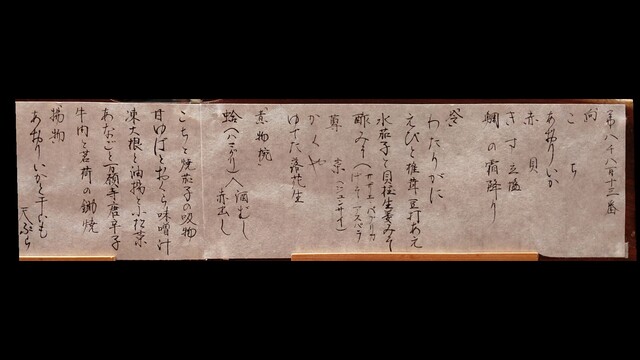 第八千八百十三番
向
こち
あおりいか
赤貝
きす立塩
鯛の霜降り
わたりがに
えびと椎茸豆打あえ
水茄子と貝柱生姜みそ
酢みそ(サザエ パプリカ
アスパラ
蓴菜(ジュンサイ)
かくや
ゆでた落花生
煮物椀
蛤(ハマグリ)へ酒むし
赤出し
こちと焼茄子の吸物
甘ゆばとおくら味噌汁
凍大根と油揚と小松菜
あなごと万願寺唐辛子
牛肉と茗荷の鋤焼
揚物
あおりいかと干いも
天ぷら